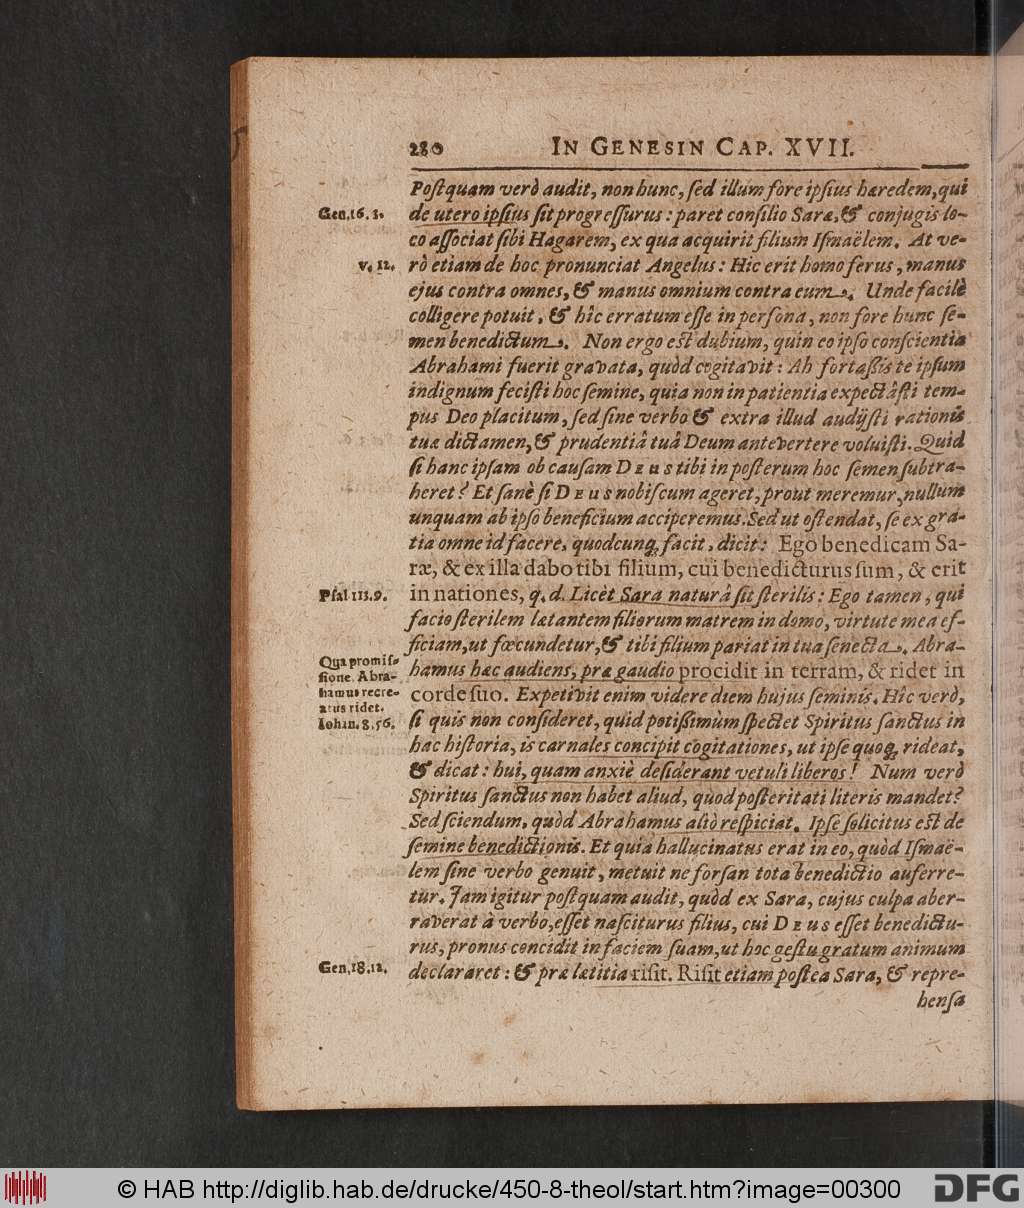 280 IN GENESIN CAP. XVII.
Poſtquam verò audit, non hunc, ſed illum fore ipſius hæredem, qui
Gen. 16. 3. de utero ipſius ſit progreſſurus: paret conſilio Saræ, & conjugis lo-
co aſſociat ſibi Hagarem, ex qua acquirit filium Iſmaëlem. At ve-
v. 12. rò etiam de hoc pronunciat Angelus: Hic erit homo ferus, manus
ejus contra omnes, & manus omnium contra eum. Unde facilè
colligere potuit, & hîc erratum eſſe in perſona, non fore hunc ſe-
men benedictum. Non ergo eſt dubium, quin eo ipſo conſcientia
Abrahami fuerit gravata, quòd cogitavit: Ah fortaßis te ipſum
indignum feciſti hoc ſemine, quia non in patientia expectâſti tem-
pus Deo placitum, ſed ſine verbo & extra illud audijſti rationis
tuæ dictamen, & prudentiâ tuâ Deum antevertere voluiſti. Quid
ſi hanc ipſam ob cauſam DEUS tibi in poſterum hoc ſemen ſubtra-
heret? Et ſanè ſi DEUS nobiſcum ageret, prout meremur, nullum
unquam ab ipſo beneficium acciperemus. Sed ut oſtendat, ſe ex gra-
tia omne id facere, quodcunq; facit, dicit: Ego benedicam Sa-
ræ, & ex illa dabo tibi filium, cui benedicturus ſum, & erit
Pſal 113. 9. in nationes, q. d. Licèt Sara naturâ ſit ſterilis: Ego tamen, qui
facio ſterilem lætantem filiorum matrem in domo, virtute mea ef-
ficiam, ut fœcundetur, & tibi filium pariat in tua ſenecta. Abra-
Qua promiſ-
ſione. Abra-
hamus recre-
atus ridet.
Iohan. 8. 56.
hamus hæc audiens, præ gaudio procidit in terram, & ridet in
corde ſuo. Expetivit enim videre diem hujus ſeminis. Hîc verò,
ſi quis non conſideret, quid potißimùm ſpectet Spiritus ſanctus in
hac hiſtoria, is carnales concipit cogitationes, ut ipſe quoq; rideat,
& dicat: hui, quam anxiè deſiderant vetuli liberos! Num verò
Spiritus ſanctus non habet aliud, quod poſteritati literis mandet?
Sed ſciendum, quòd Abrahamus aliò reſpiciat. Ipſe ſolicitus eſt de
ſemine benedictionis. Et quia hallucinatus erat in eo, quòd Iſmaë-
lem ſine verbo genuit, metuit ne forſan tota benedictio auferre-
tur. Jam igitur poſtquam audit, quòd ex Sara, cujus culpa aber-
raverat à verbo, eſſet naſciturus filius, cui DEUS eſſet benedictu-
rus, pronus concidit in faciem ſuam, ut hoc geſtu gratum animum
Gen. 18. 12. declararet: & præ lætitia riſit. Riſit etiam poſtea Sara, & repre-
henſa
© HAB http://diglib.hab.de/drucke/450-8-theol/start.htm?image=00300
DFG